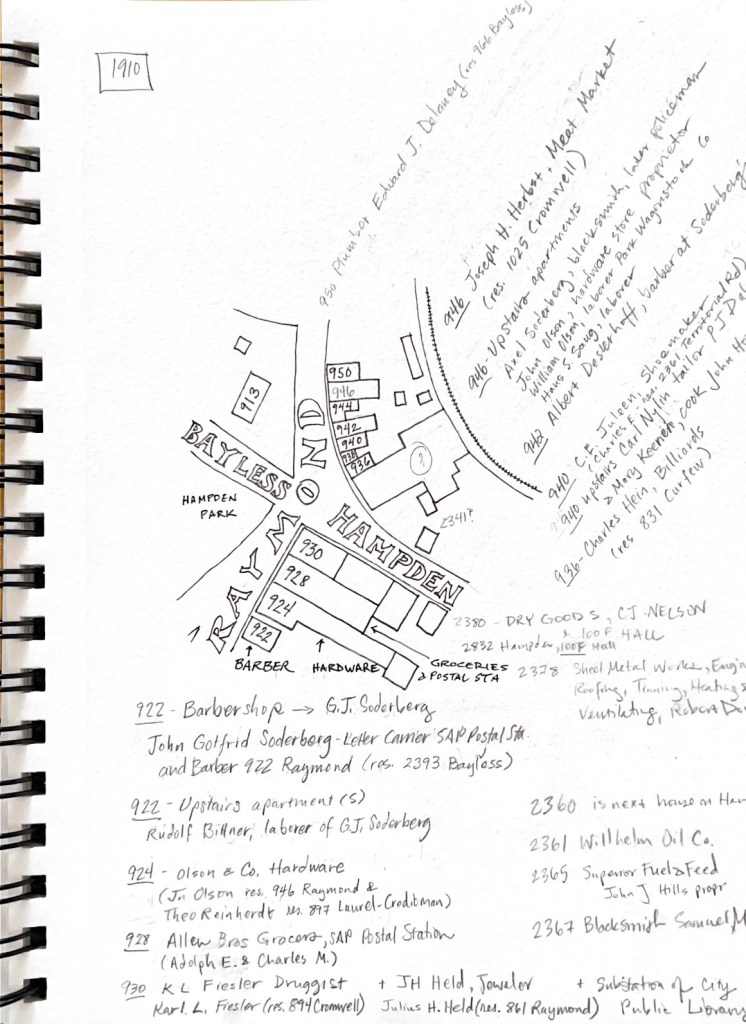 1910
950 Plumber Edward J. Delaney (res 966 Bayless)
946 Joseph H. Herbst, Meat Market
(res. 1025 Cromwell)
946 - Upstairs apartments
Axel Soderberg, blacksmith, later policeman
John Olson, hardware store proprietor
William Olson, laborer Park Wagonstock Co
Hans S. Saug, laborer
942 Albert Deslerhoff, barber at Soderberg's
940 C.E. Juleen, Shoemaker
(Charles E. res. 2361 Territorial Rd)
940 upstairs Carl Nylin tailor PJ
& Mary Keenen, cook John
936 - Charles Hein, Billiards
(res 831 Curfew)
913
950
946
944
942
940
938
936
?
BAYLESS
HAMPDEN
PARK
RAYMOND
HAMPDEN
2341?
930
928
924
922
BARBER
HARDWARE
GROCERIES
& POSTAL STA
2380 - DRY GOODS, CJ. NELSON
& IOOF HALL
2832 Hampden, IOOF Hall
2378 Sheet Metal Works,
Roofing, Tinning, Heating &
Ventilating, Robert
922 - Barbershop → G.J. Soderberg
John Gotfrid Soderberg - Letter Carrier SAP Postal Sta.
and Barber 922 Raymond (res. 2393 Bayless)
922 - Upstairs apartment(s)
Rudolf Bittner, laborer of G.J. Soderberg
924 - Olson & Co. Hardware
(Jn Olson res. 946 Raymond &
Theo Reinherdt res. 897 Laurel - Creditman)
928 Allen Bros Grocers, SAP Postal Station
(Adolph E. & Charles M.)
930 K L Fiesler Druggist + JH Held, Jeweler + Substation of City
Karl. L. Fiesler (res. 894 Cromwell) Julius H. Held (res. 861 Raymond) Public Library
2360 is next house on
2361 Willhelm Oil Co.
2365 Superior Fuel & Feed
John J Hills propr
2367 Blacksmith Samuel